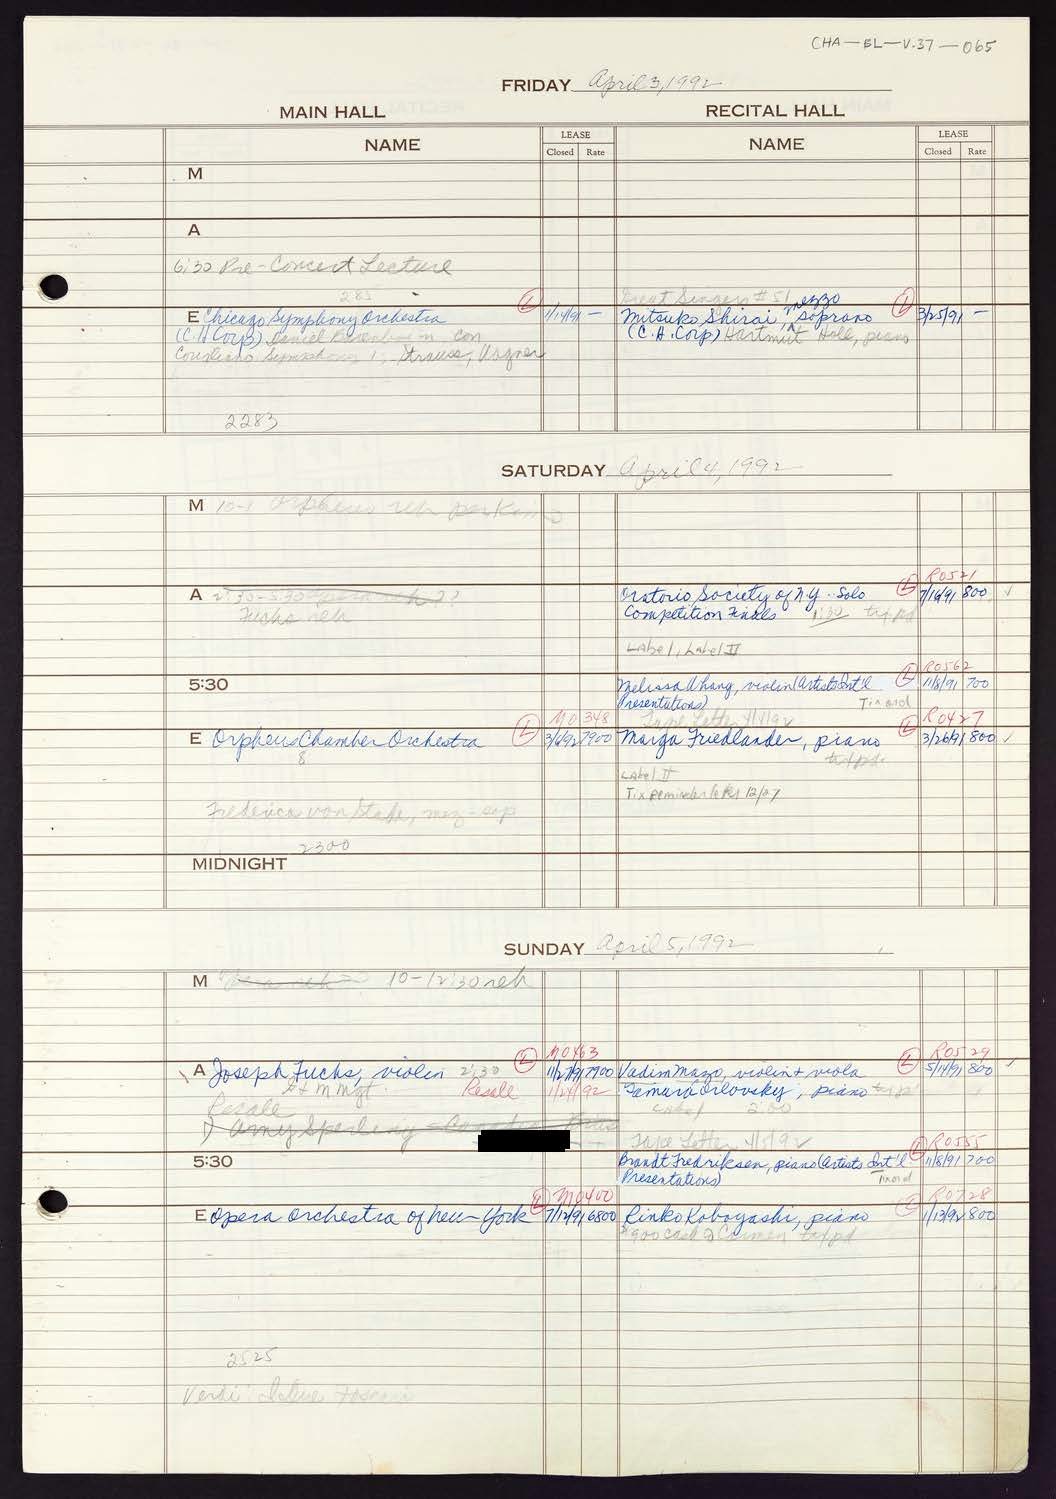 CHA-BL-V.37-065
FRIDAY April 3, 1992
MAIN HALL
RECITAL HALL
NAME
LEASE
Closed Rate
NAME
LEASE
Closed Rate
M
A
6:30 Pre-Concert Lecture
283
E Chicago Symphony Orchestra
(C.H. Corp) Daniel Barenboim con
Corigliano Symphony 1, Strauss, Wagner
L
1/14/91 —
2283
Great Singers #5/
Mitsuko Shirai, mezzo soprano
(C.H. Corp) Hartmut Holl, piano
L
3/25/91 —
SATURDAY April 4, 1992
M 10-1 Orpheus reh
A 2:30-5:30 opera reh ??
Fuchs reh
Oratorio Society of N.Y. - Solo
Competition Finals 1:30 tax pd
Label, Label II
L
R0521
7/16/91 800 ✓
5:30
Melissa Whang, violin (Artists Int'l
Presentations) Tix ord
Tape Letter 4/1/92
L
R0562
11/8/91 700
E Orpheus Chamber Orchestra
8
L
M0348
3/6/92 7900
Frederica von Stade, mez-sop
2300
Marga Friedlander, piano
tax pd.
Label II
Tix reminder letter 12/07
L
R0427
3/26/91 800 ✓
MIDNIGHT
SUNDAY April 5, 1992
M Opera reh 10-12:30 reh
A Joseph Fuchs, violin 2:30
G+M Mgt.
Resale
Resale
L
M0463
11/27/91 7900
1/24/92
Amy Sperling
Vadim Mazo, violin + viola
Tamara Orlovsky, piano tax pd
Label 2:00
Tape Letter 4/5/92
L
R0529
5/14/91 800 ✓
5:30
Brandt Fredriksen, piano (Artists Int'l
Presentations) Tix ord
L
R0555
11/8/91 700
E Opera Orchestra of New York
L
M0400
7/12/91 6800
Rinko Kobayashi, piano
$900 cash 2 Carmen tax pd
L
R0728
1/13/92 800
2525
Verdi: I due Foscari